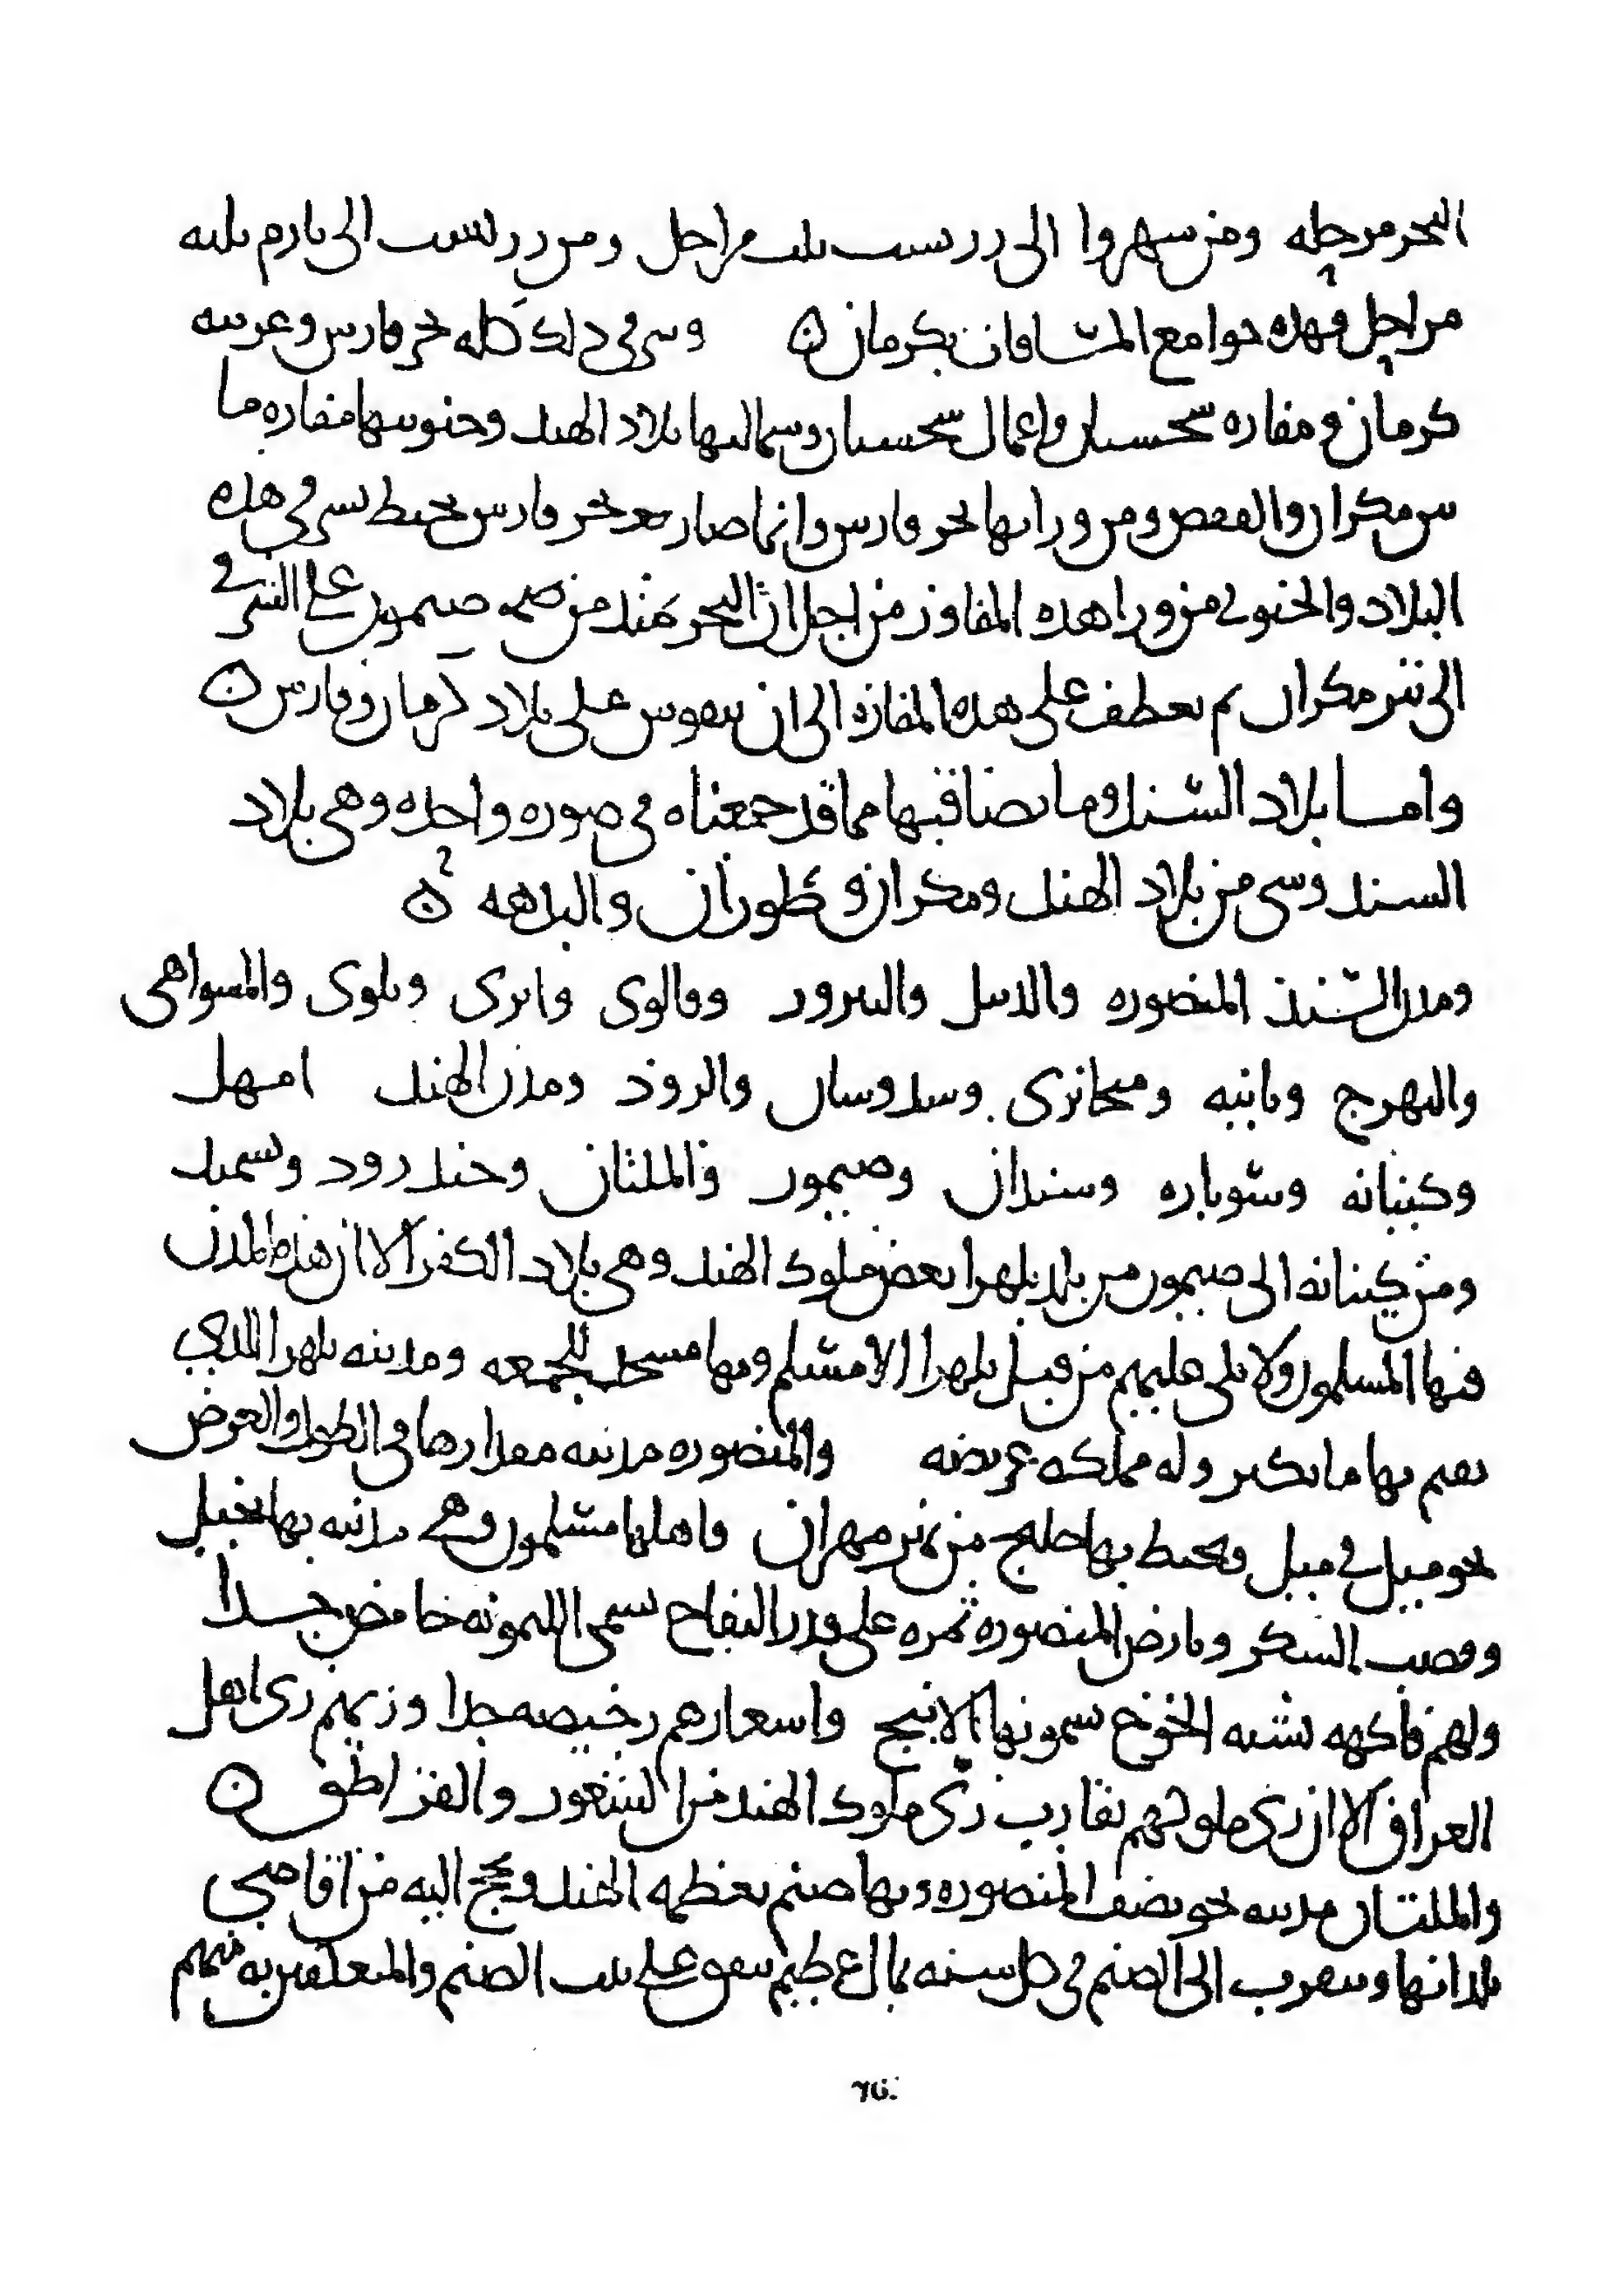 البحر مرحله ومن سهروا الى رد رست ثلث مراحل ومن رد رست الى بارم ثلثه
مراحل فهذه جوامع المسافات بكرمان ن وشرقى ذلك كله بحر فارس وغربيه
كرمان ومفازه سجستان واعمال سجستان وشماليها بلاد الهند وجنوبيها مفازه ما
بين مكران والقفص ومن ورائها بحر فارس وانما صار بعد بحر فارس يحيط بشرقى هذه
البلاد والجنوبى من ورا هذه المفاوز من اجل ان البحر يمتد من صيمور على الشرقى
الى تيز مكران ثم يعطف على هذه المفازه الى ان يتقوس على بلاد كرمان وفارس ن
واما بلاد السند وما يصاقبها مما قد جمعناه فى صوره واحده وهى بلاد
السند وشى من بلاد الهند ومكران وطوران والبدهه ن
ومدن السند المنصوره والدبيل والبيرور وقالوى وانرى وبلوى والمسواهى
والبهرج وبانيه ومنجابرى وسدوسان والروذ ومدن الهند امهل
وكنبانه وسوباره وسندان وصيمور والملتان وجندرود وبسمد
ومن كنبانه الى صيمور من بلد بلهرا بعض ملوك الهند وهى بلاد الكفر الا ان هذه المدن
فيها المسلمون ولا يلى عليهم من قبل بلهرا الا مسلم وبها مسجد للجمعه ومدينه بلهرا التى
يقيم بها مانكير وله مملكه عريضه والمنصوره مدينه مقدارها فى الطول والعرض
نحو ميل فى ميل ويحيط بها خليج من نهر مهران واهلها مسلمون وهى مدينه بها نخيل
وقصب السكر وبارض المنصوره ثمره على قدر التفاح تسمى الليمونه حامض جدا
ولهم فاكهه تشبه الخوخ يسمونها الانبج واسعارهم رخيصه جدا وزيهم زى اهل
العراق الا ان زى ملوكهم يقارب زى ملوك الهند من الشعور والقراطق ن
والملتان مدينه نحو نصف المنصوره وبها صنم يعظمه الهند ويحج اليه من اقاصى
بلدانها ويتقرب الى الصنم فى كل سنه بمال عظيم ينفق على بيت الصنم والمعتكفين به منهم